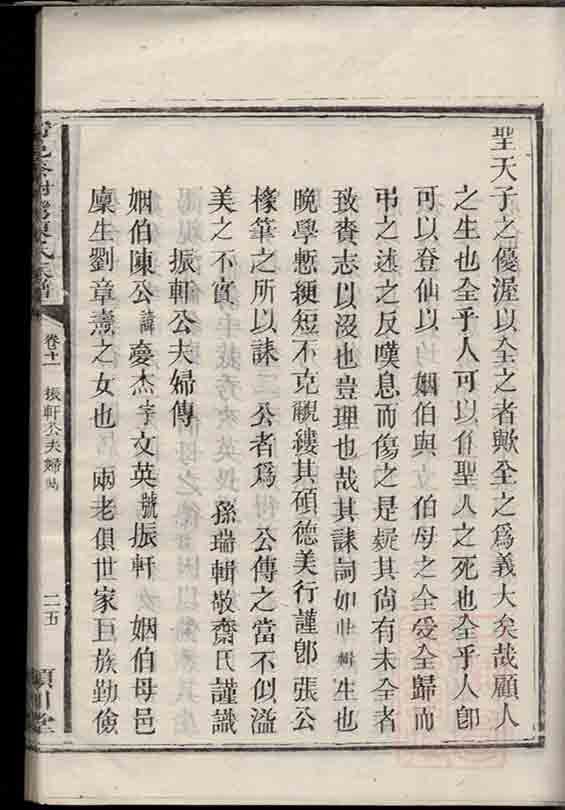 聖天子之優渥以全之者歟全之爲義大矣哉顧人
之生也全乎人可以作聖人之死也全乎人卽
可以登仙以 姻伯與 伯母之全受全歸而
弔之述之反嘆息而傷之是疑其尙有未全者
致賫志以歿也豈理也哉其誄詞如此輯生也
晩學慙綆短不克覼縷其碩德美行謹卽張公
椽筆之所以誄 公者爲 公傳之當不似溢
美之不實 孫瑞輯敬齋氏謹識
振軒公夫婦傳
姻伯陳公諱慶杰字文英號振軒 姻伯母邑
廩生劉章燾之女也 兩老俱世家巨族勤儉
陳氏族譜
卷十一 振軒公夫婦
二五
潁川堂